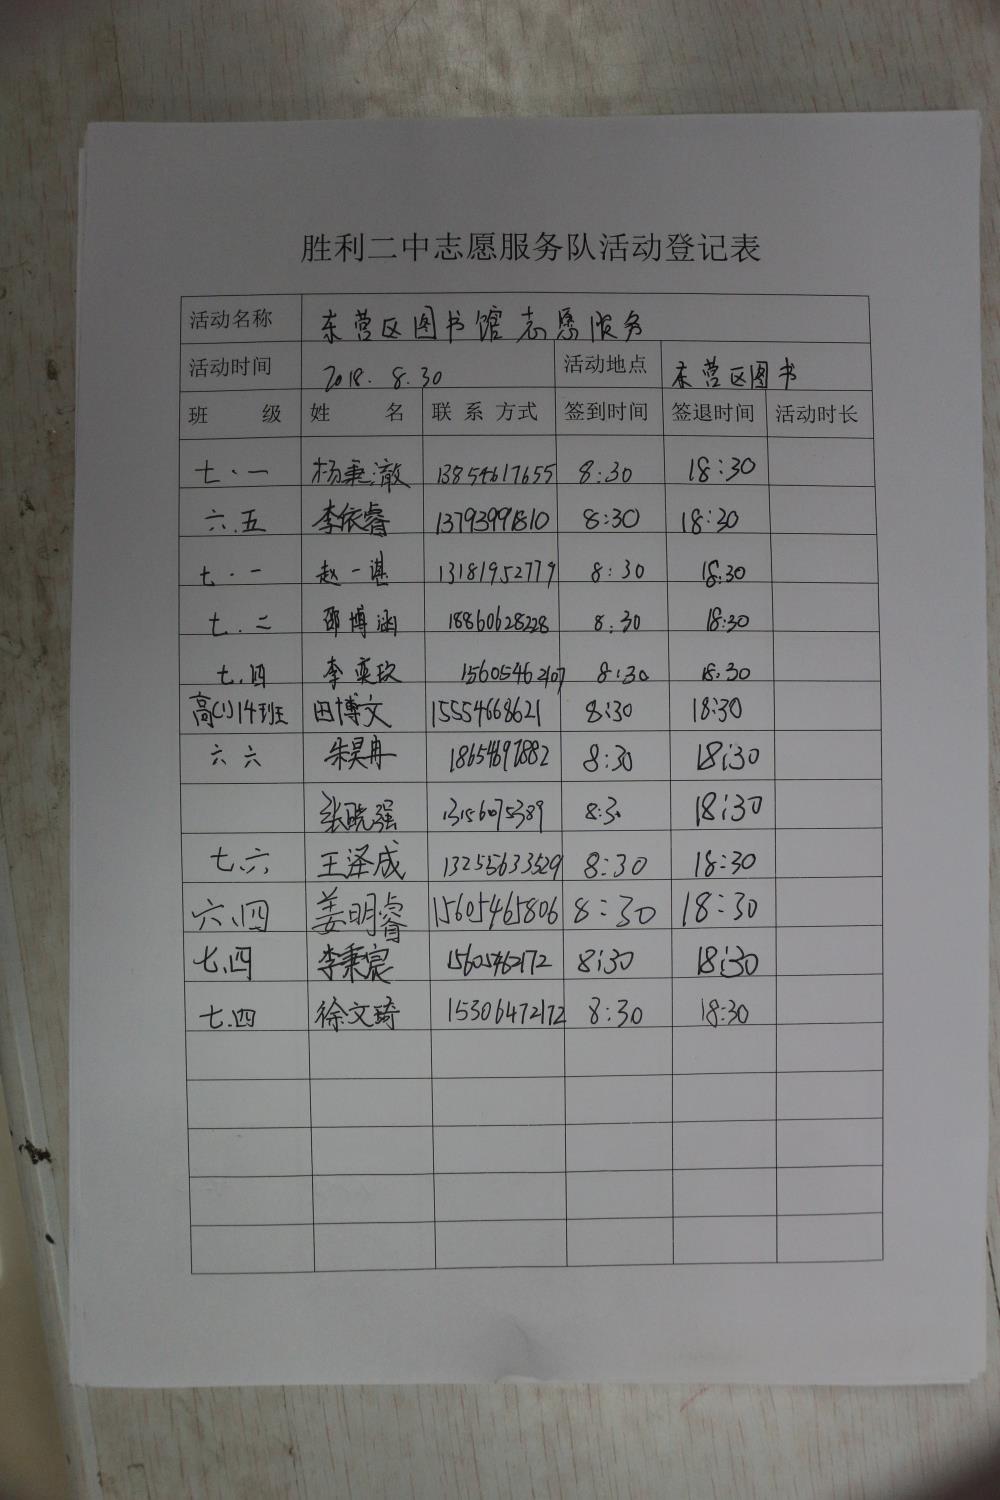 胜利二中志愿服务队活动登记表
活动名称 东营区图书馆志愿服务
活动时间 2018.8.30 活动地点 东营区图书
班 级 姓 名 联系方式 签到时间 签退时间 活动时长
七.一 杨秉澈 13854617655 8:30 18:30
六.五 李依睿 13793991810 8:30 18:30
七.一 赵一湛 13181952779 8:30 18:30
七.二 邵博涵 18860628228 8:30 18:30
七.四 李奕玟 15605462107 8:30 18:30
高(1)14班 田博文 15554668621 8:30 18:30
六六 朱昊冉 18654697882 8:30 18:30
张晓强 13156075389 8:30 18:30
七.六 王泽成 13255633529 8:30 18:30
六.四 姜明睿 15605465806 8:30 18:30
七.四 李秉宸 15605462172 8:30 18:30
七.四 徐文琦 15306472172 8:30 18:30